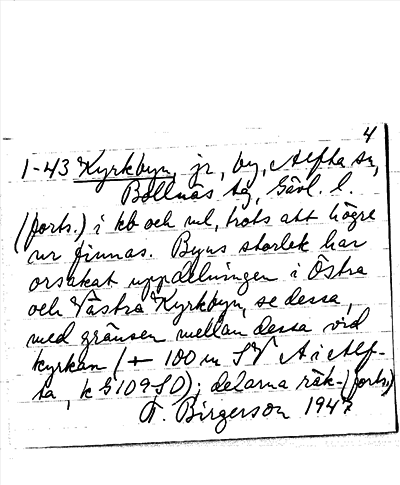 4
1-43 Kyrkbyn, jr, by, Alfta sn,
Bollnäs tg, Gävl. l.
(forts.) i kb och ml, trots att högre
nr finnas. Byns storlek har
orsakat uppdelningen i Östra
och Västra Kyrkbyn, se dessa,
med gränsen mellan dessa vid
kyrkan (+ 100 m SV A i Alf-
ta, k G 109 SD); delarna räk- (forts.)
F. Birgerson 1947